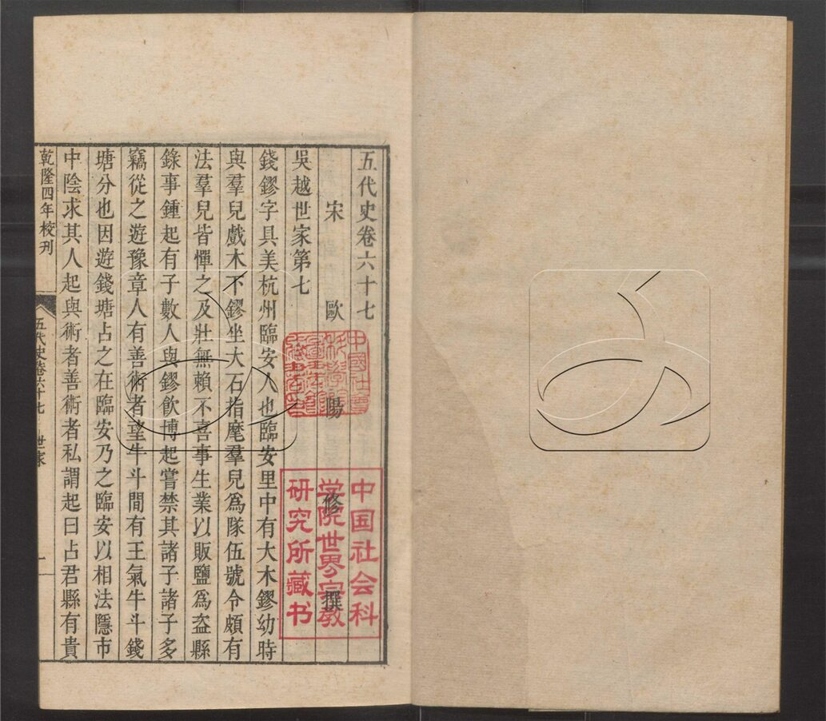 五代史卷六十七
宋 歐陽修撰
吳越世家第七
錢鏐字具美杭州臨安人也臨安里中有大木鏐幼時
與羣兒戲木下鏐坐大石指麾羣兒爲隊伍號令頗有
法羣兒皆憚之及壯無賴不喜事生業以販鹽爲盜縣
錄事鍾起有子數人與鏐飲博起嘗禁其諸子諸子多
竊從之遊豫章人有善術者望牛斗間有王氣牛斗錢
塘分也因遊錢塘占之在臨安乃之臨安以相法隱市
中陰求其人起與術者善術者私謂起曰占君縣有貴
乾隆四年校刊
五代史卷六十七 世家
一
中国社会科
学院世界宗教
研究所藏书